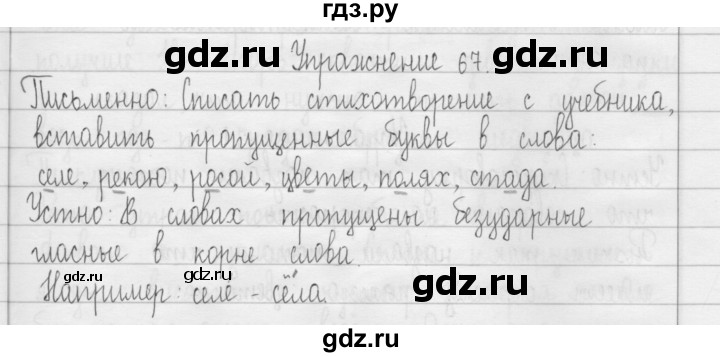 гдз.ру
gdz.ru gdz.ru
Упражнение 67.
Письменно: Списать стихотворение с учебника,
вставить пропущенные буквы в слова:
селе, рекою, росой, цветы, полях, стада.
Устно: В словах пропущены безударные
гласные в корне слова.
gdz.ru gdz.ru gdz.ru
Например: селе - сёла.
gdz.ru